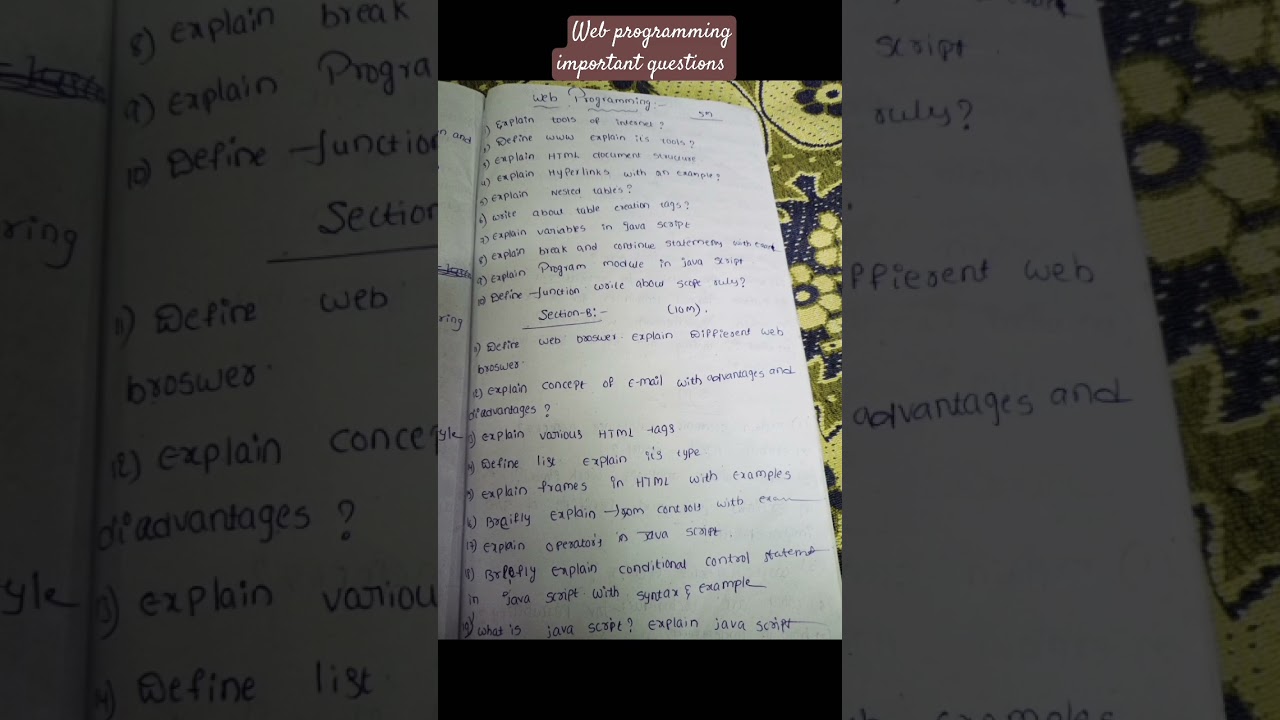 Web programming
important questions
Web Programming:-
5M
1) Explain tools of internet?
2) Define WWW explain it's tools?
3) Explain HTML document structure
4) Explain Hyperlinks with an example?
5) Explain Nested tables?
6) Write about table creation tags?
7) Explain variables in Java Script
8) Explain break and continue statements with
9) Explain Program module in java script
10) Define function write about scope ruly?
Section-B:- (10M).
11) Define web broswer. Explain Diffierent web
broswer.
12) Explain concept of E-mail with advantages and
disadvantages?
13) Explain various HTML tags
14) Define list explain it's type
15) Explain frames in HTML with examples
16) Braifly explain from controls with
17) Explain operator's in Java script.
18) Briefly explain conditional control
in java script with syntax & example
19) What is java script? Explain java script
8) Explain break
9) Explain Progra
10) Define function
Section
11) Define web
broswer.
12) Explain conce
disadvantages?
13) Explain variou
14) Define list
ring
yle
script
ruly?
ffierent web
advantages and